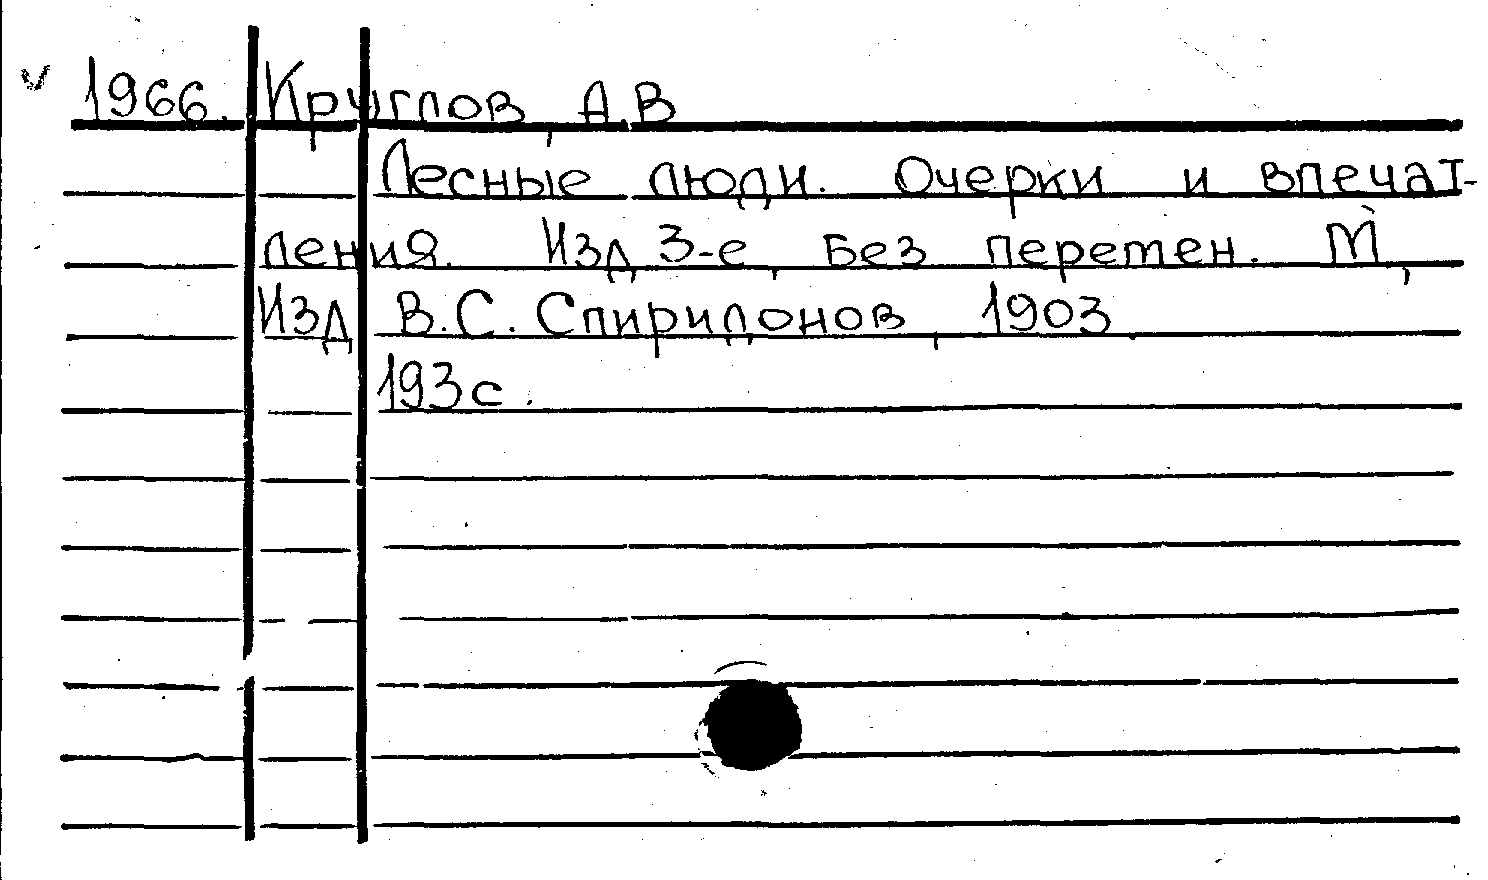 1966. Круглов, А.В
Лесные люди. Очерки и впечат-
ления. Изд, 3-е, без перетен. М,
Изд. В.С. Спиридонов, 1903
193с.